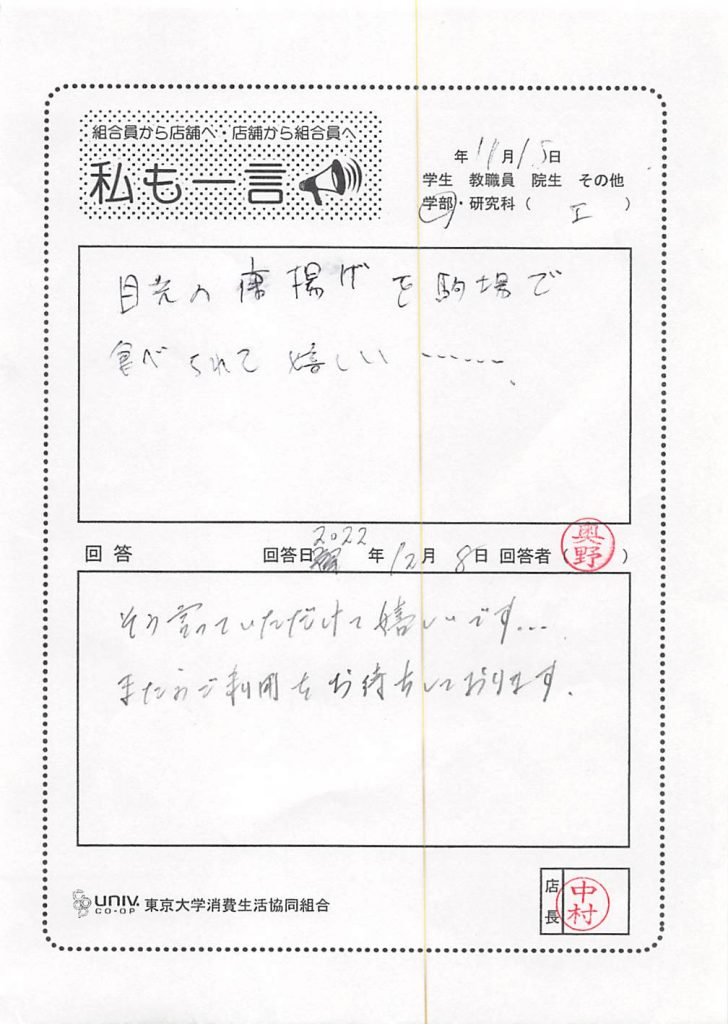 組合員から店舗へ・店舗から組合員へ
私も一言
年 11月 15日
学生 教職員 院生 その他
学部・研究科( 工 )
の唐揚げを駒場で
食べられて嬉しい ……。
回答 回答日 2022年 12月 8日 回答者( 奥野 )
そう言っていただけて嬉しいです...
またのご利用をお待ちしております。
UNIV. CO-OP 東京大学消費生活協同組合
店長 中村